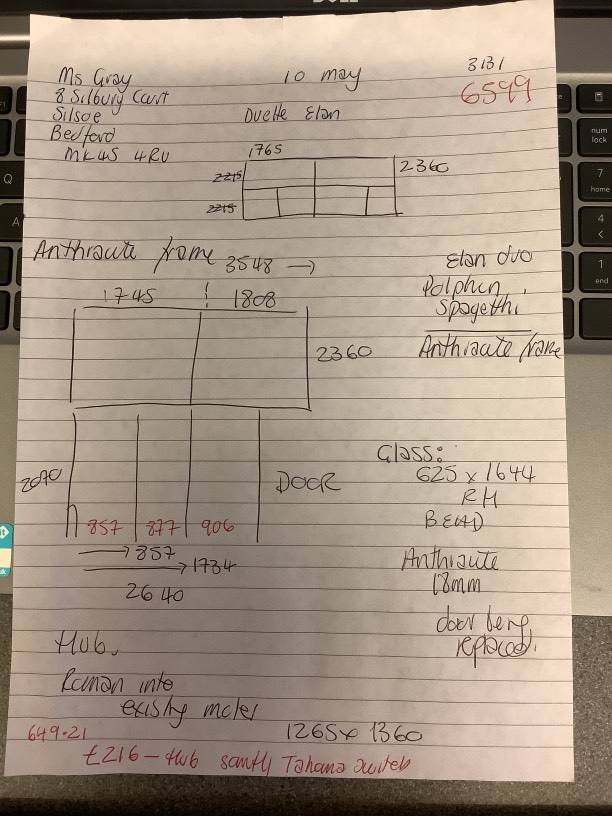 Ms Gray
10 may
3131
8 Silbury Court
6599
Silsoe
Duette Elan
Bedford
MK45 4RU
1765
2215
2360
2215
Anthracite frame
3548 →
Elan duo
1745
1808
Dolphin
Spagetti
2360
Anthracite frame
2090
DOOR
Glass:
625 x 1644
RH
BEAD
857 877 906
→ 857
→ 1734
2640
Anthracite
18mm
door being
replaced.
Hub.
Roman into
existing motor
649.21
1265 x 1360
£216 - Hub Tahoma switch
num
lock
7
home
4
<
1
end
Q
A